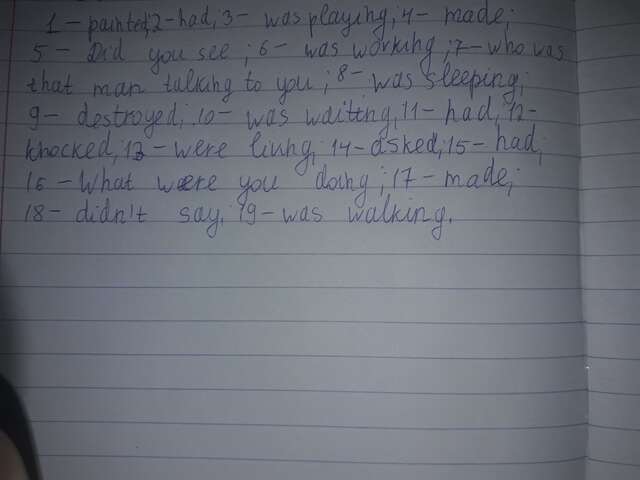 1 - painted; 2 - had; 3 - was playing; 4 - made;
5 - Did you see; 6 - was working; 7 - who was
that man talking to you; 8 - was sleeping;
9 - destroyed; 10 - was waiting; 11 - had; 12 -
knocked; 13 - were living; 14 - asked; 15 - had;
16 - What were you doing; 17 - made;
18 - didn't say; 19 - was walking.